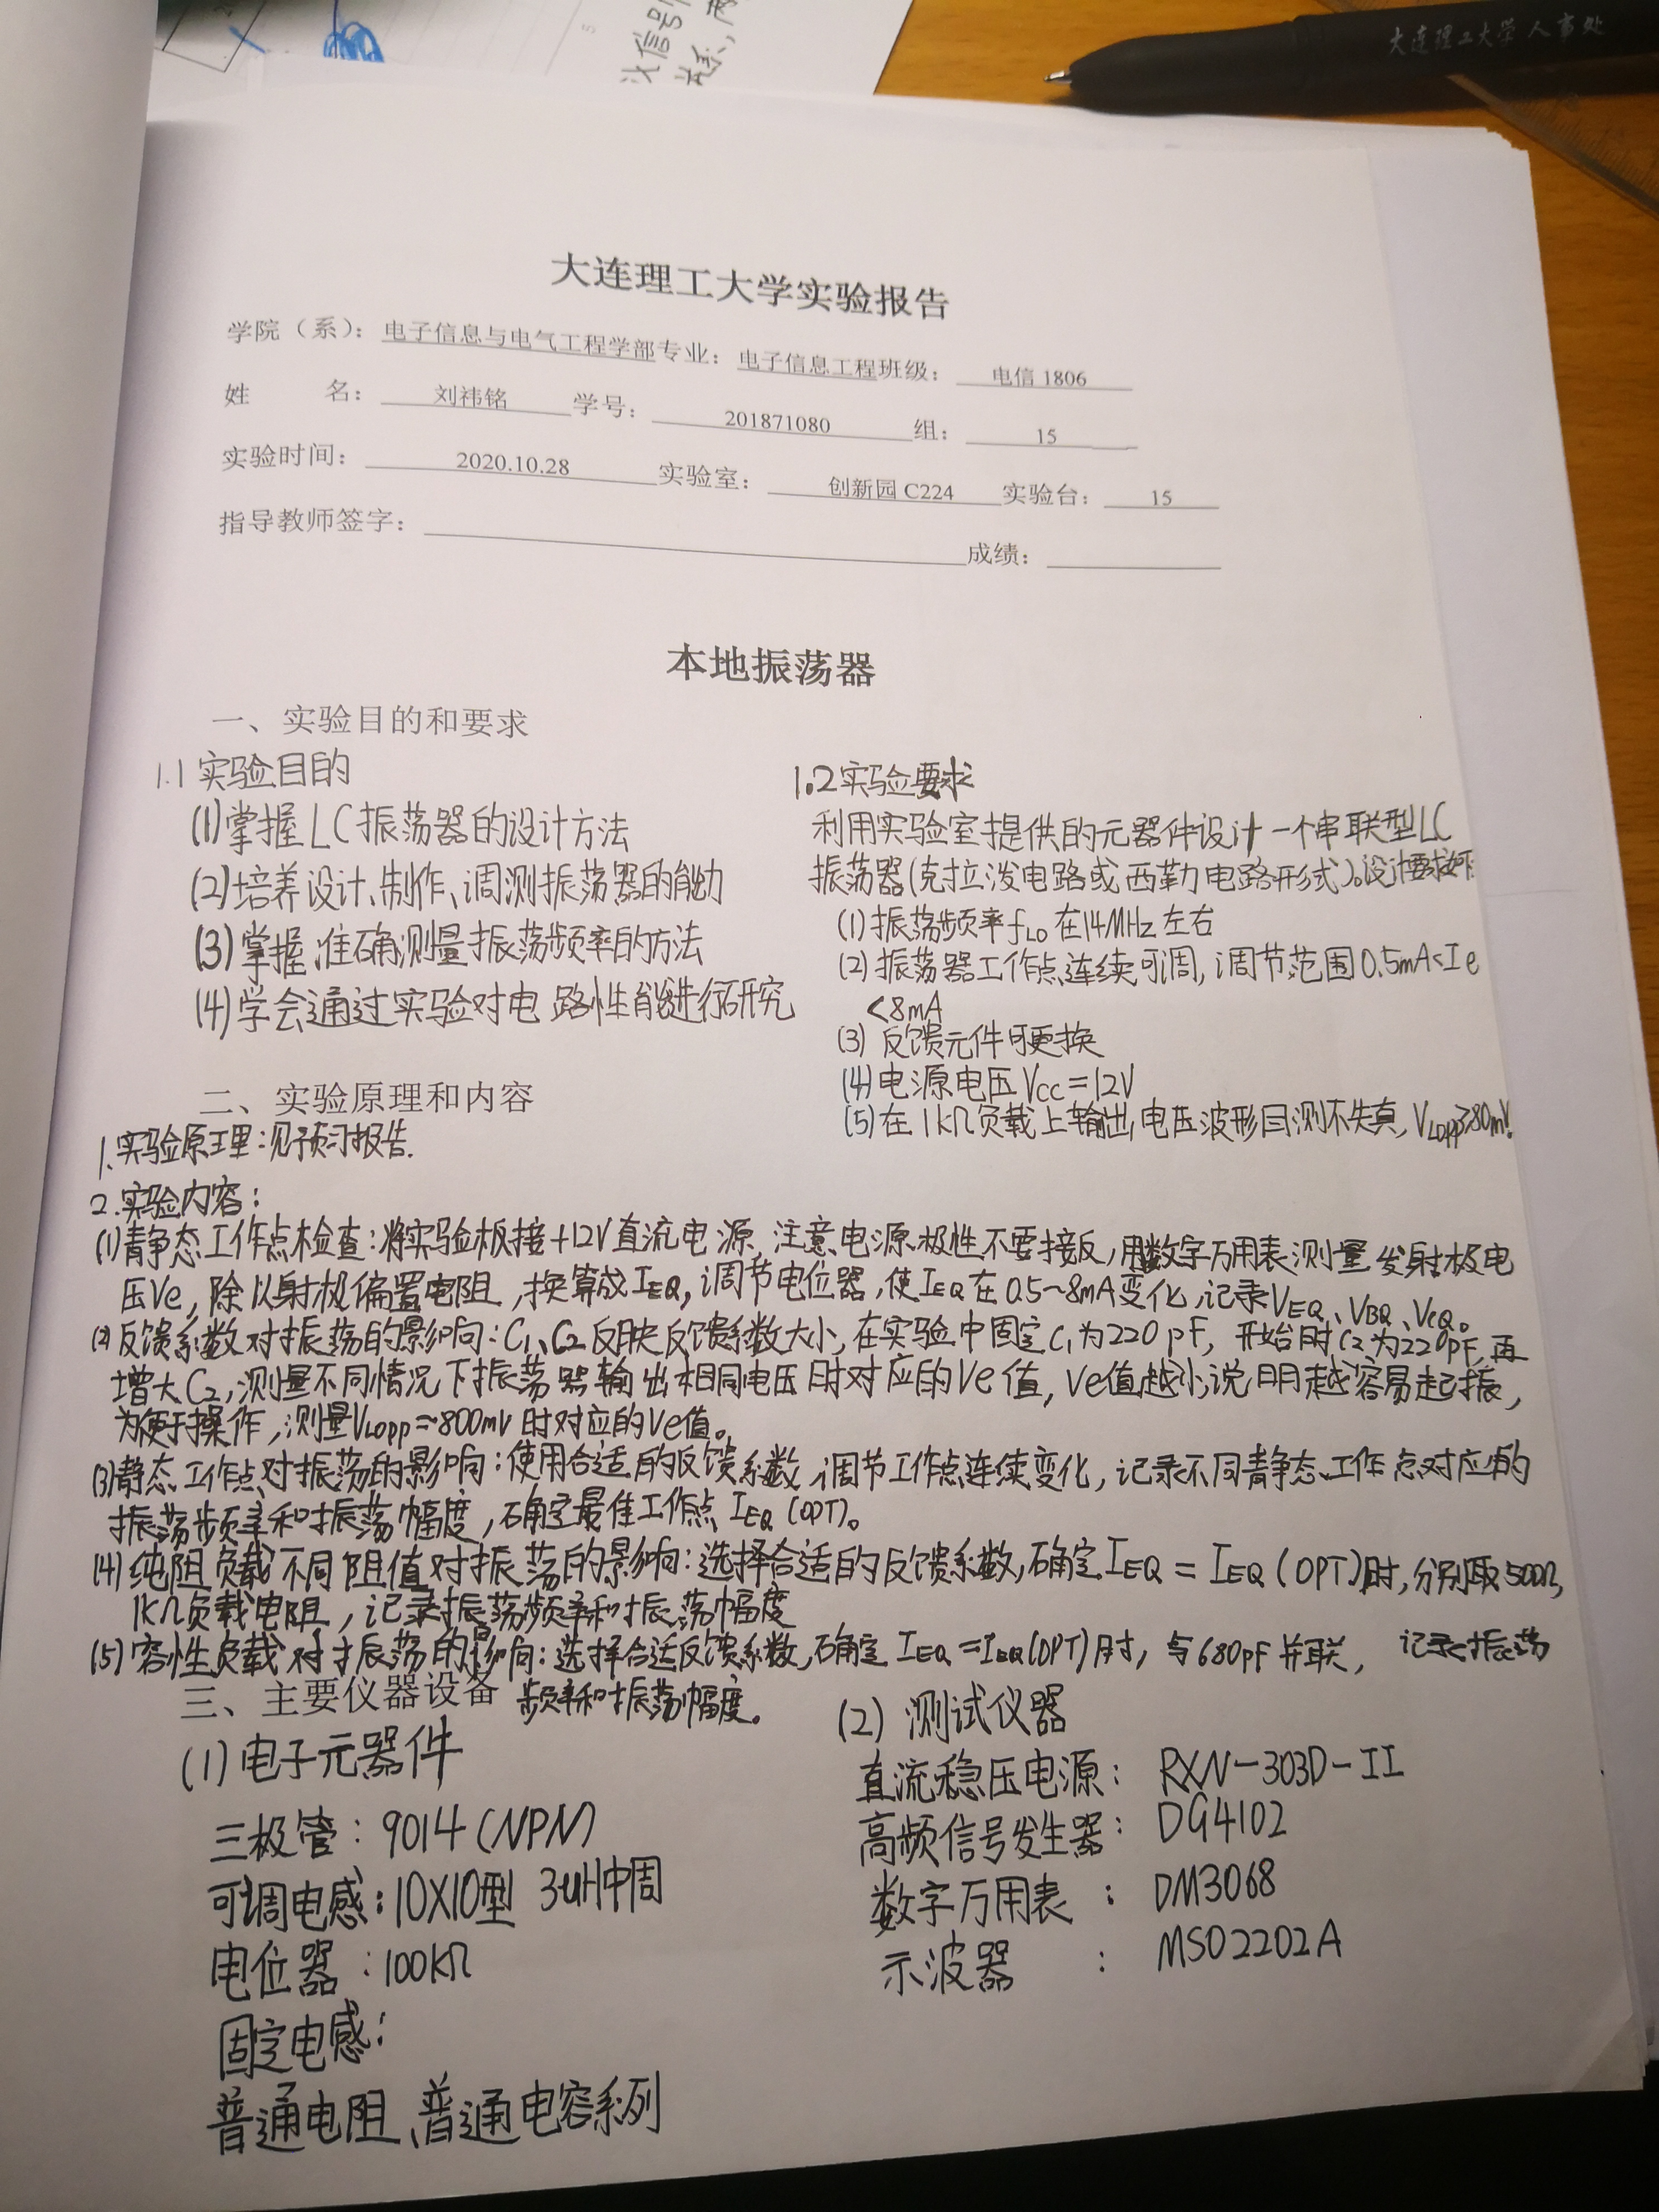 大连理工大学人事处
大连理工大学实验报告
学院（系）：电子信息与电气工程学部专业：电子信息工程班级：电信 1806
姓 名：刘祎铭 学号：201871080 组：15
实验时间：2020.10.28 实验室：创新园 C224 实验台：15
指导教师签字： 成绩：
本地振荡器
一、实验目的和要求
1.1 实验目的
(1)掌握LC振荡器的设计方法
(2)培养设计、制作、调测振荡器的能力
(3)掌握准确测量振荡频率的方法
(4)学会通过实验对电路性能进行研究
1.2实验要求
利用实验室提供的元器件设计一个串联型LC
振荡器(克拉泼电路或西勒电路形式)。设计要求如下
(1)振荡频率fLO在14MHz左右
(2)振荡器工作点连续可调,调节范围0.5mA<Ie
<8mA
(3)反馈元件可更换
(4)电源电压Vcc=12V
(5)在1kΩ负载上输出电压波形目测不失真,VLopp≥80mV.
二、实验原理和内容
1.实验原理:见预习报告.
2.实验内容:
(1)静态工作点检查:将实验板接+12V直流电源,注意电源极性不要接反,用数字万用表测量发射极电
压Ve,除以射极偏置电阻,换算成IEQ,调节电位器,使IEQ在0.5~8mA变化,记录VEQ、VBQ、VCQ。
(2)反馈系数对振荡的影响:C1、C2反映反馈系数大小,在实验中固定C1为220pF,开始时C2为220pF,再
增大C2,测量不同情况下振荡器输出相同电压时对应的Ve值,Ve值越小,说明越容易起振,
为便于操作,测量VLopp=~800mV时对应的Ve值。
(3)静态工作点对振荡的影响:使用合适的反馈系数,调节工作点连续变化,记录不同静态工作点对应的
振荡频率和振荡幅度,确定最佳工作点IEQ(OPT)。
(4)纯阻负载不同阻值对振荡的影响:选择合适的反馈系数,确定IEQ=IEQ(OPT)时,分别取500Ω,
1kΩ负载电阻,记录振荡频率和振荡幅度
(5)容性负载对振荡的影响:选择合适反馈系数,确定IEQ=IEQ(OPT)时,与680pF并联,记录振荡
频率和振荡幅度。
三、主要仪器设备
(1)电子元器件
三极管:9014(NPN)
可调电感:10X10型 3uH中周
电位器:100kΩ
固定电感:
普通电阻、普通电容系列
(2)测试仪器
直流稳压电源:RXN-303D-II
高频信号发生器:DG4102
数字万用表:DM3068
示波器:MSO2202A